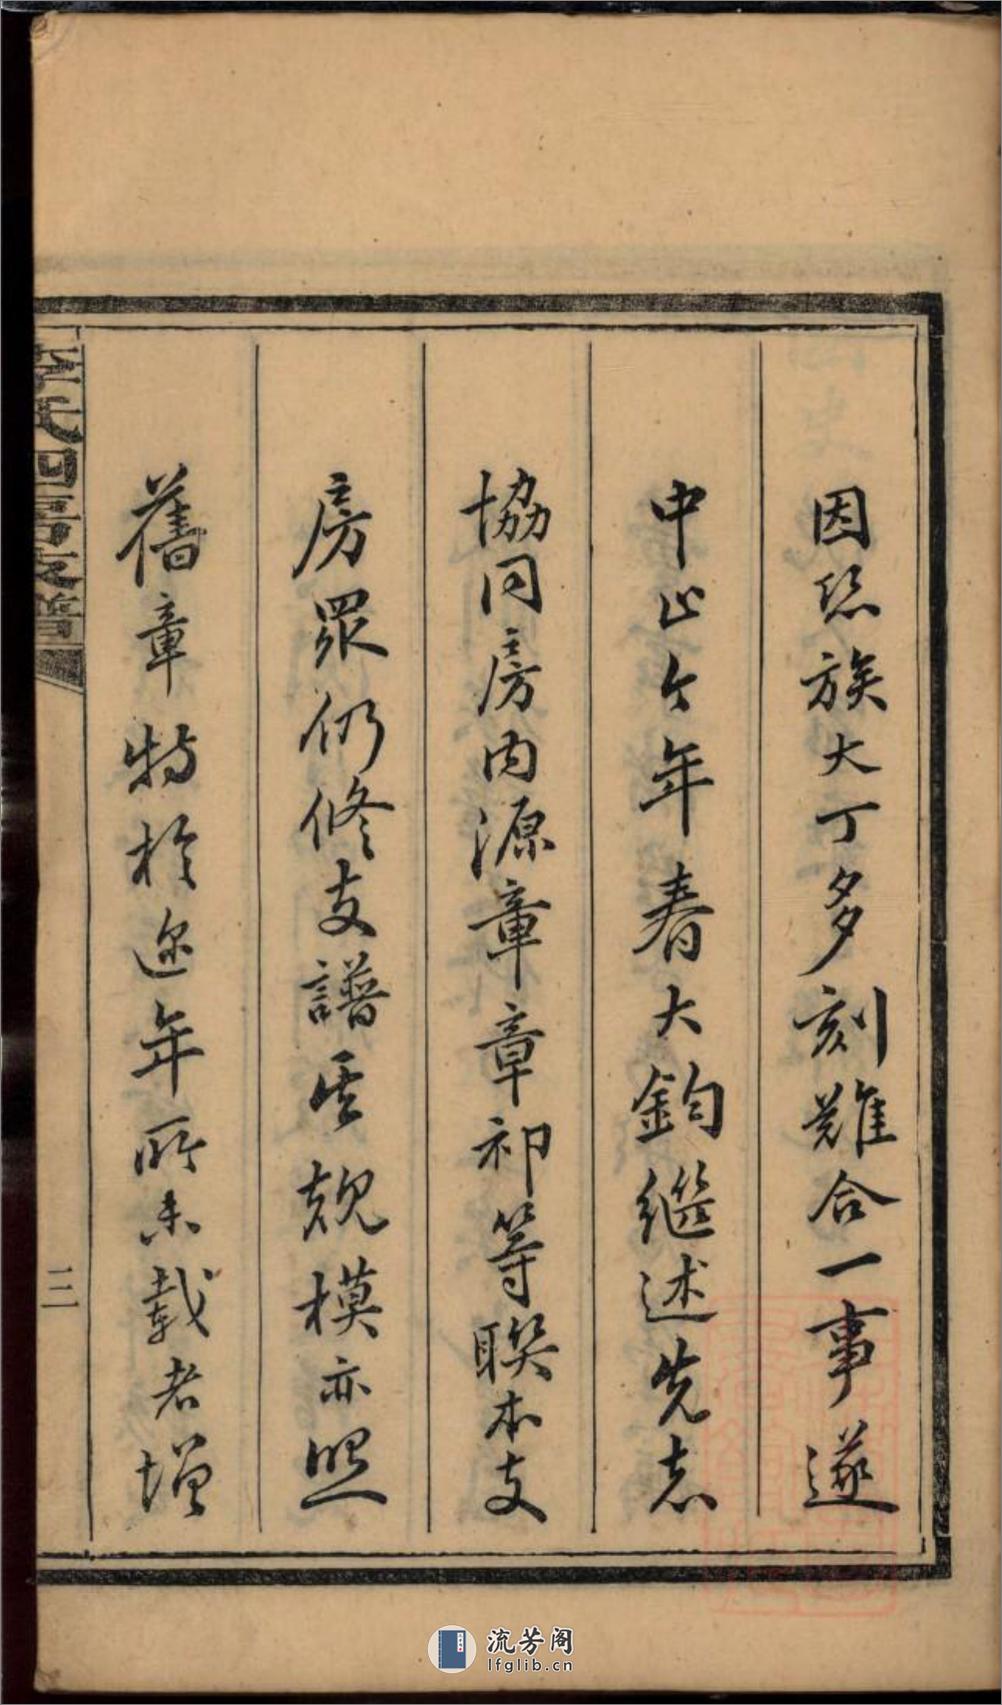 因恐族大丁多刻難合一事遂
中止今年春大鈞繼述先志
協同房內源章章祁等聯本支
房眾仍修支譜其規模亦照
舊章特於近年所未載者增
李氏四房支譜
三
流芳阁
lfglib.cn